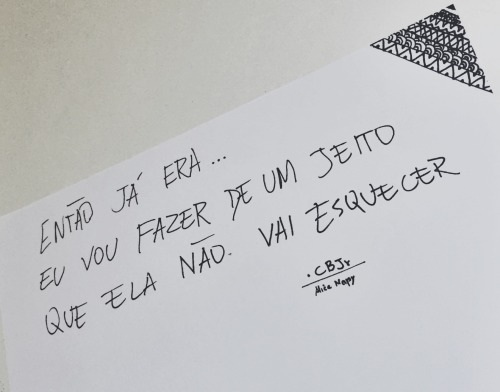 ENTÃO JÁ ERA...
EU VOU FAZER DE UM JEITO
QUE ELA NÃO. VAI ESQUECER
.CBJr